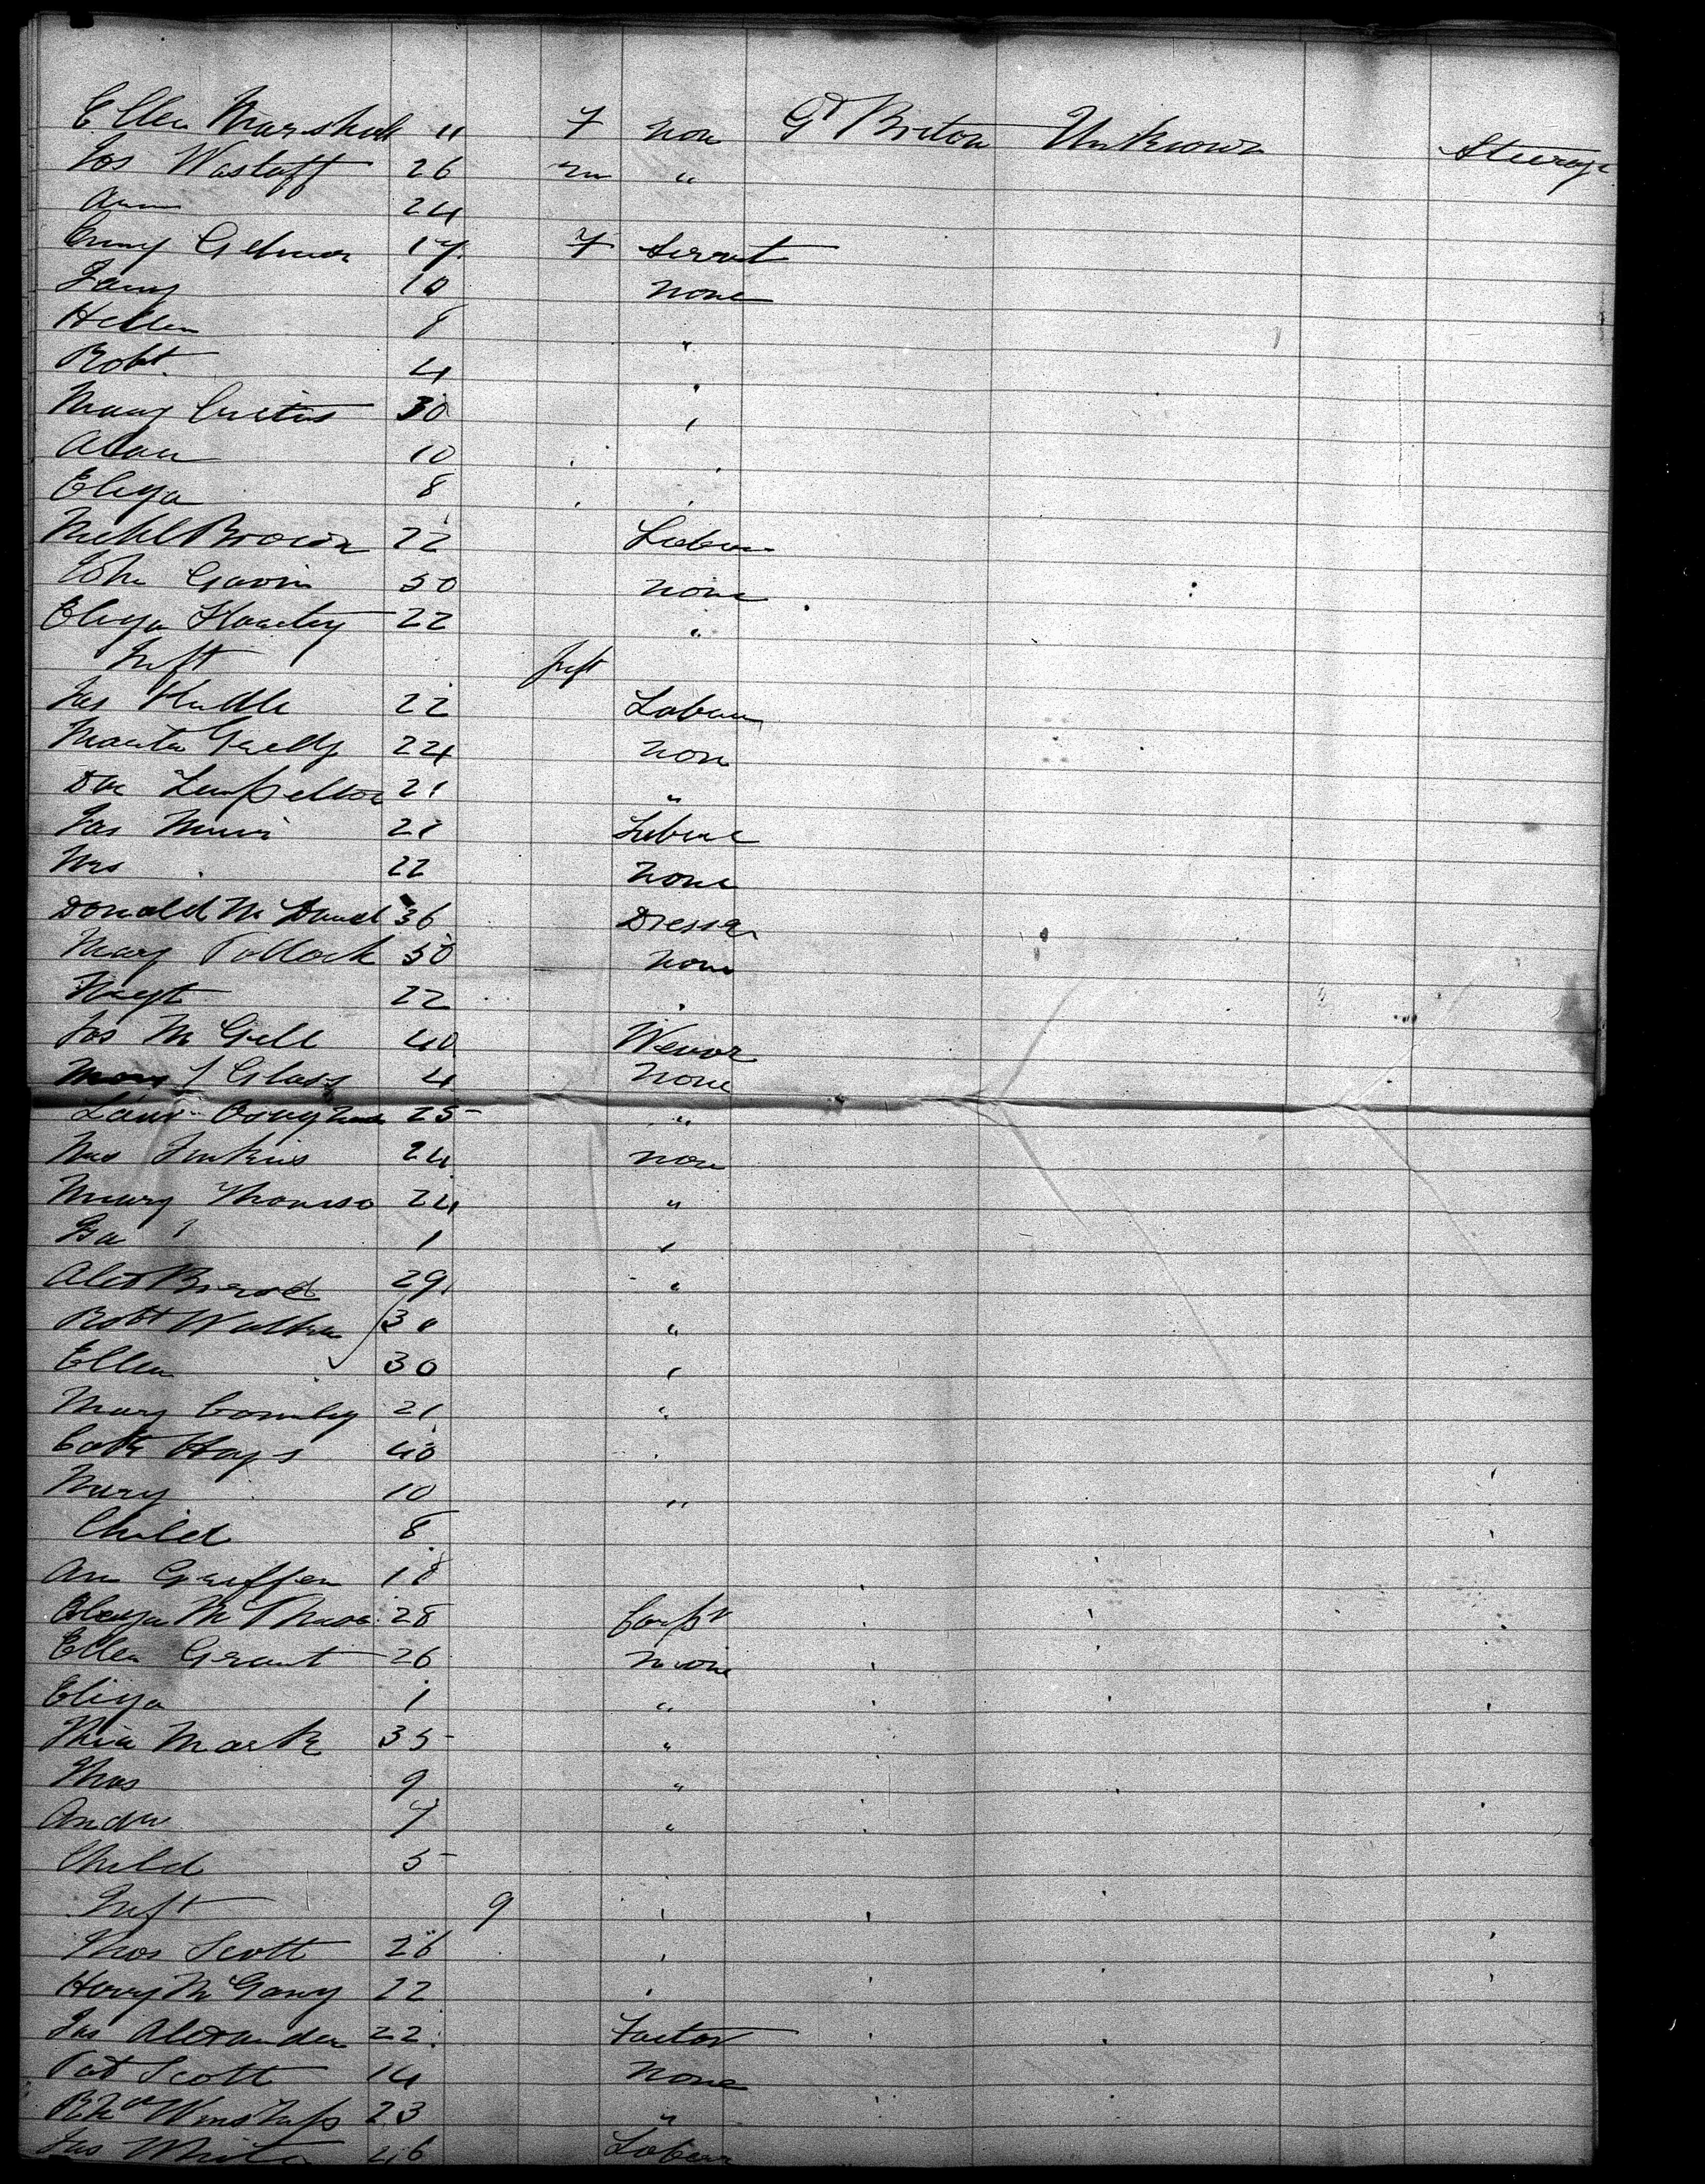 Ellen Marshall 11 F non Gt Briton Unknown Steerage
Jos Wastaff 26 m "
Ann 24
Emmy Gelmor 17 F Servnt
Fany 10 none
Hellen 8 "
Robt 4 "
Mary Curtis 30 "
Adam 10
Eliza 8
Michl Brown 22 Labour
John Gavin 50 none
Eliza Hartey 22 "
Inft Inft
Jas Huddle 22 Labour
Martin Grelly 24 non
21 "
Jas Muir 21 Labour
Mrs 22 none
Donald McDonald 36 Dresser
Mary Pollock 50 none
Margt 22 "
Jas McGill 40 Wevor
Mary J Glass 4 none
25 "
Mrs Jenkins 24 non
Mary Thomso 24 "
Geo 1 "
Alex 29 "
Robt Walker 30 "
Ellen 30 "
Mary Comley 21 "
Cath Hays 40 "
Mary 10 "
Child 8
Ann Griffen 18
28 Carpr
Ellen Grant 26 none
Eliza 1 "
Mark 35 "
Thos 9 "
Andw 7 "
Child 5
Inft 9 "
Thos Scott 26 "
Henry McGany 22 "
Jas Alexander 22 Factor
Pat Scott 14 none
Winship 23 "
Jas White 46 Labour